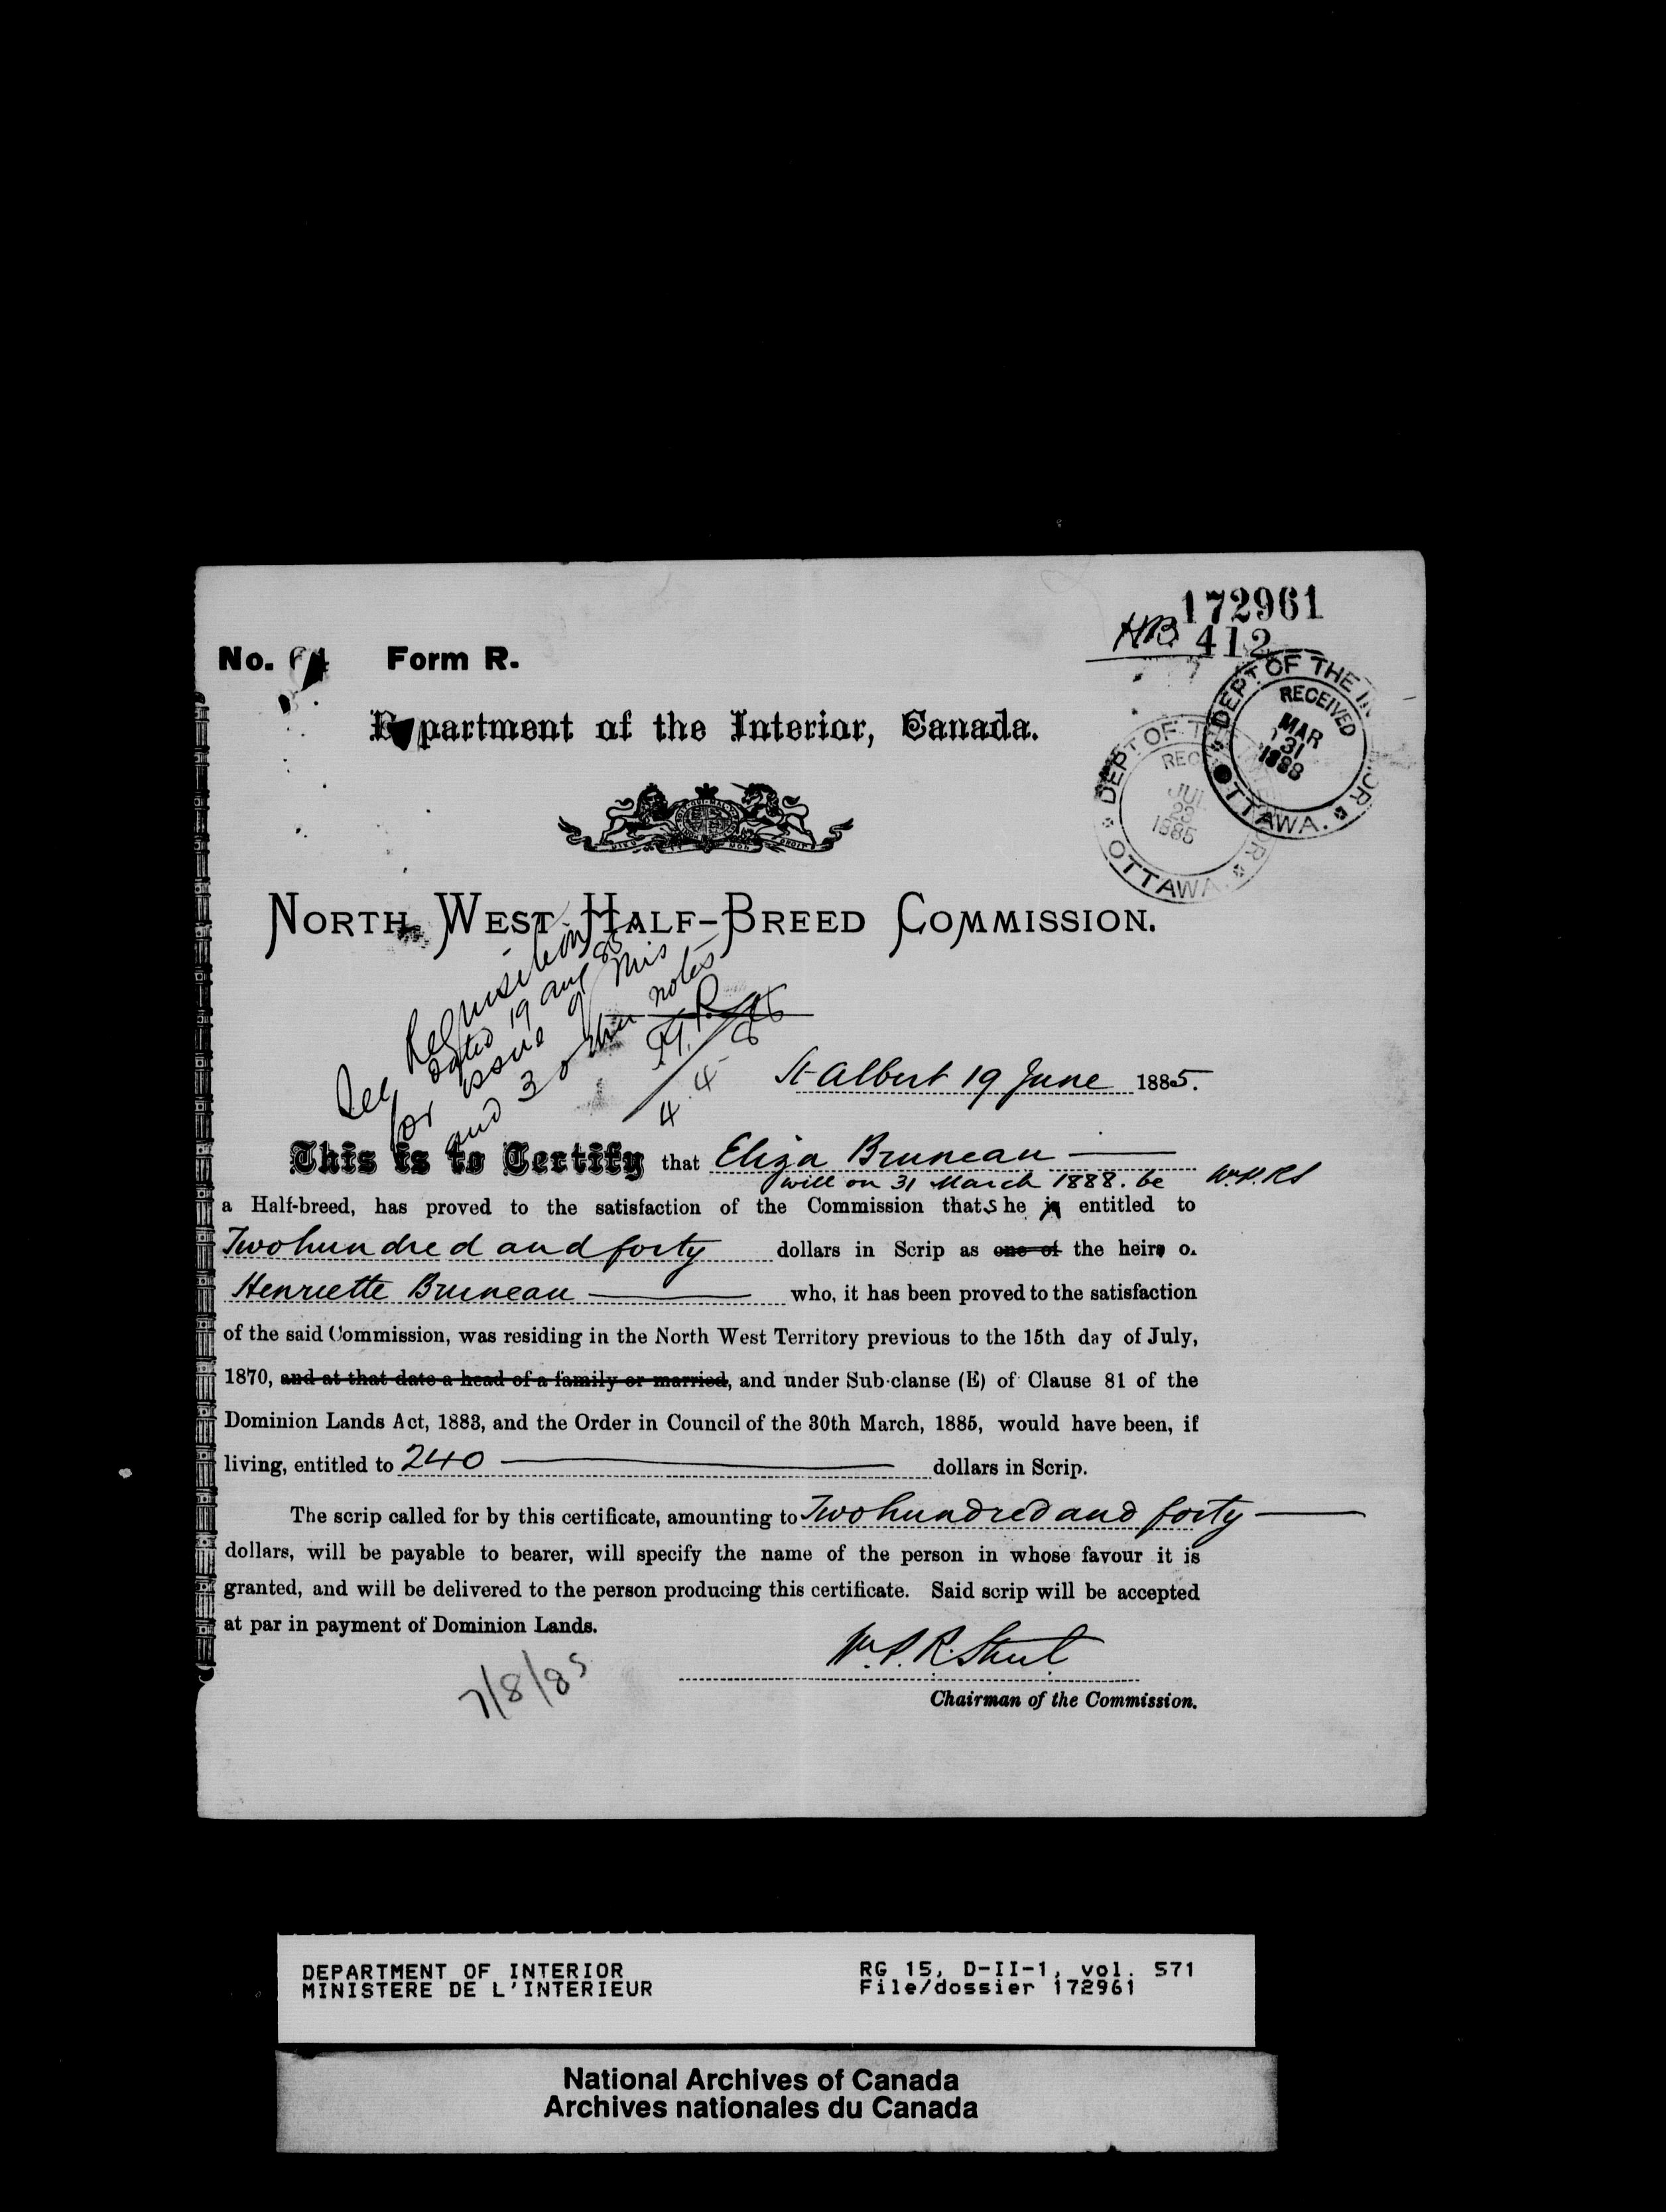 172961
HB 412
No. 64 Form R.
DEPT OF THE INTERIOR
RECEIVED
MAR
31
1888
OTTAWA.
DEPT OF THE INTERIOR
REC
JUL
23
1885
OTTAWA.
Department of the Interior, Canada.
NORTH WEST HALF-BREED COMMISSION.
See Requisition
dated 19 Aug 85
for issue of this
and 3 other notes
4.4.88
St Albert 19 June 1885.
This is to Certify that Eliza Bruneau
will on 31 March 1888. be W.P.R.S
a Half-breed, has proved to the satisfaction of the Commission that S he is entitled to
Two hundred and forty dollars in Scrip as one of the heirs o.
Henriette Bruneau who, it has been proved to the satisfaction
of the said Commission, was residing in the North West Territory previous to the 15th day of July,
1870, and at that date a head of a family or married, and under Sub-clanse (E) of Clause 81 of the
Dominion Lands Act, 1883, and the Order in Council of the 30th March, 1885, would have been, if
living, entitled to 240 dollars in Scrip.
The scrip called for by this certificate, amounting to Two hundred and forty
dollars, will be payable to bearer, will specify the name of the person in whose favour it is
granted, and will be delivered to the person producing this certificate. Said scrip will be accepted
at par in payment of Dominion Lands.
7/8/85
Wm P. R. Street
Chairman of the Commission.
DEPARTMENT OF INTERIOR RG 15, D-II-1, vol. 571
MINISTERE DE L'INTERIEUR File/dossier 172961
National Archives of Canada
Archives nationales du Canada